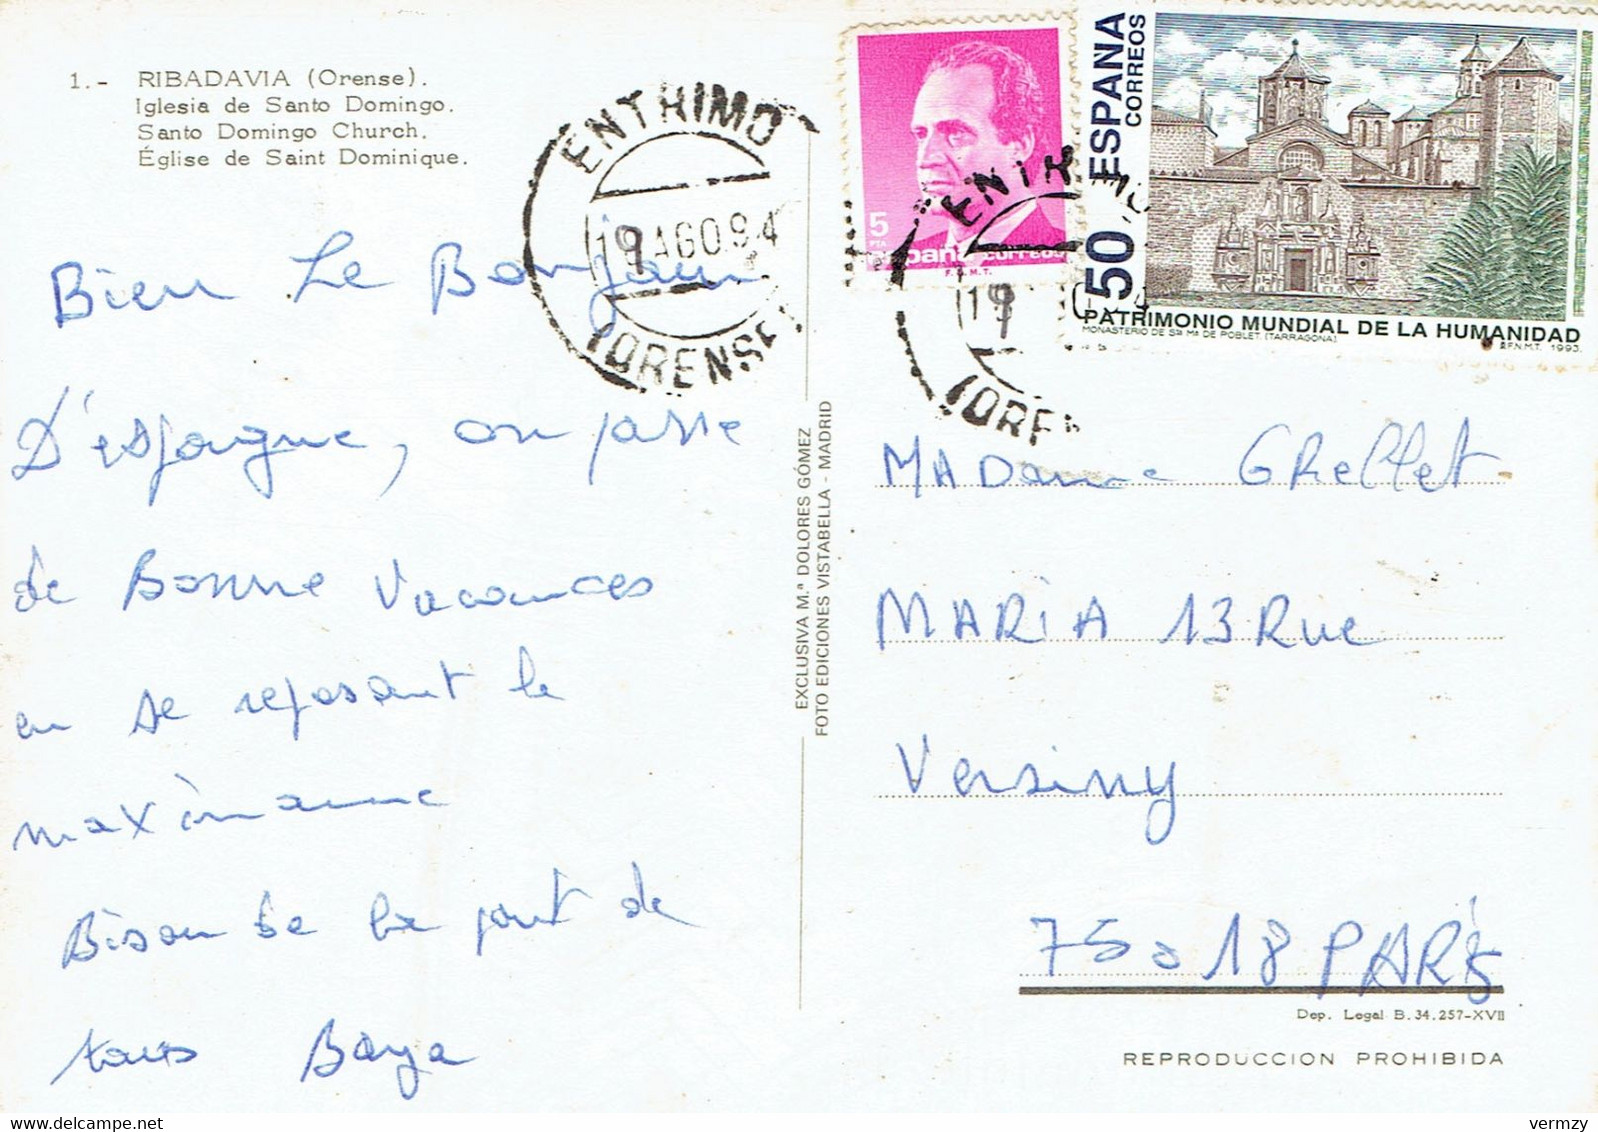 1.- RIBADAVIA (Orense).
Iglesia de Santo Domingo.
Santo Domingo Church.
Église de Saint Dominique.
Bien Le Bonjour
D'espagne, on passe
de Bonne Vacances
en se reposant le
maximum
de la part de
tous Baya
EXCLUSIVA M.ª DOLORES GÓMEZ
FOTO EDICIONES VISTABELLA - MADRID
ENTRIMO
19 AGO.94
(ORENSE)
5
PTA
España correos
F.N.M.T.
50 ESPAÑA
CORREOS
PATRIMONIO MUNDIAL DE LA HUMANIDAD
MONASTERIO DE Sta Mª DE POBLET. (TARRAGONA)
R.F.N.M.T. 1993.
MADame GRellet
MARiA 13 Rue
Versiny
75018 PARiS
Dep. Legal B. 34.257-XVII
REPRODUCCION PROHIBIDA
vermzy